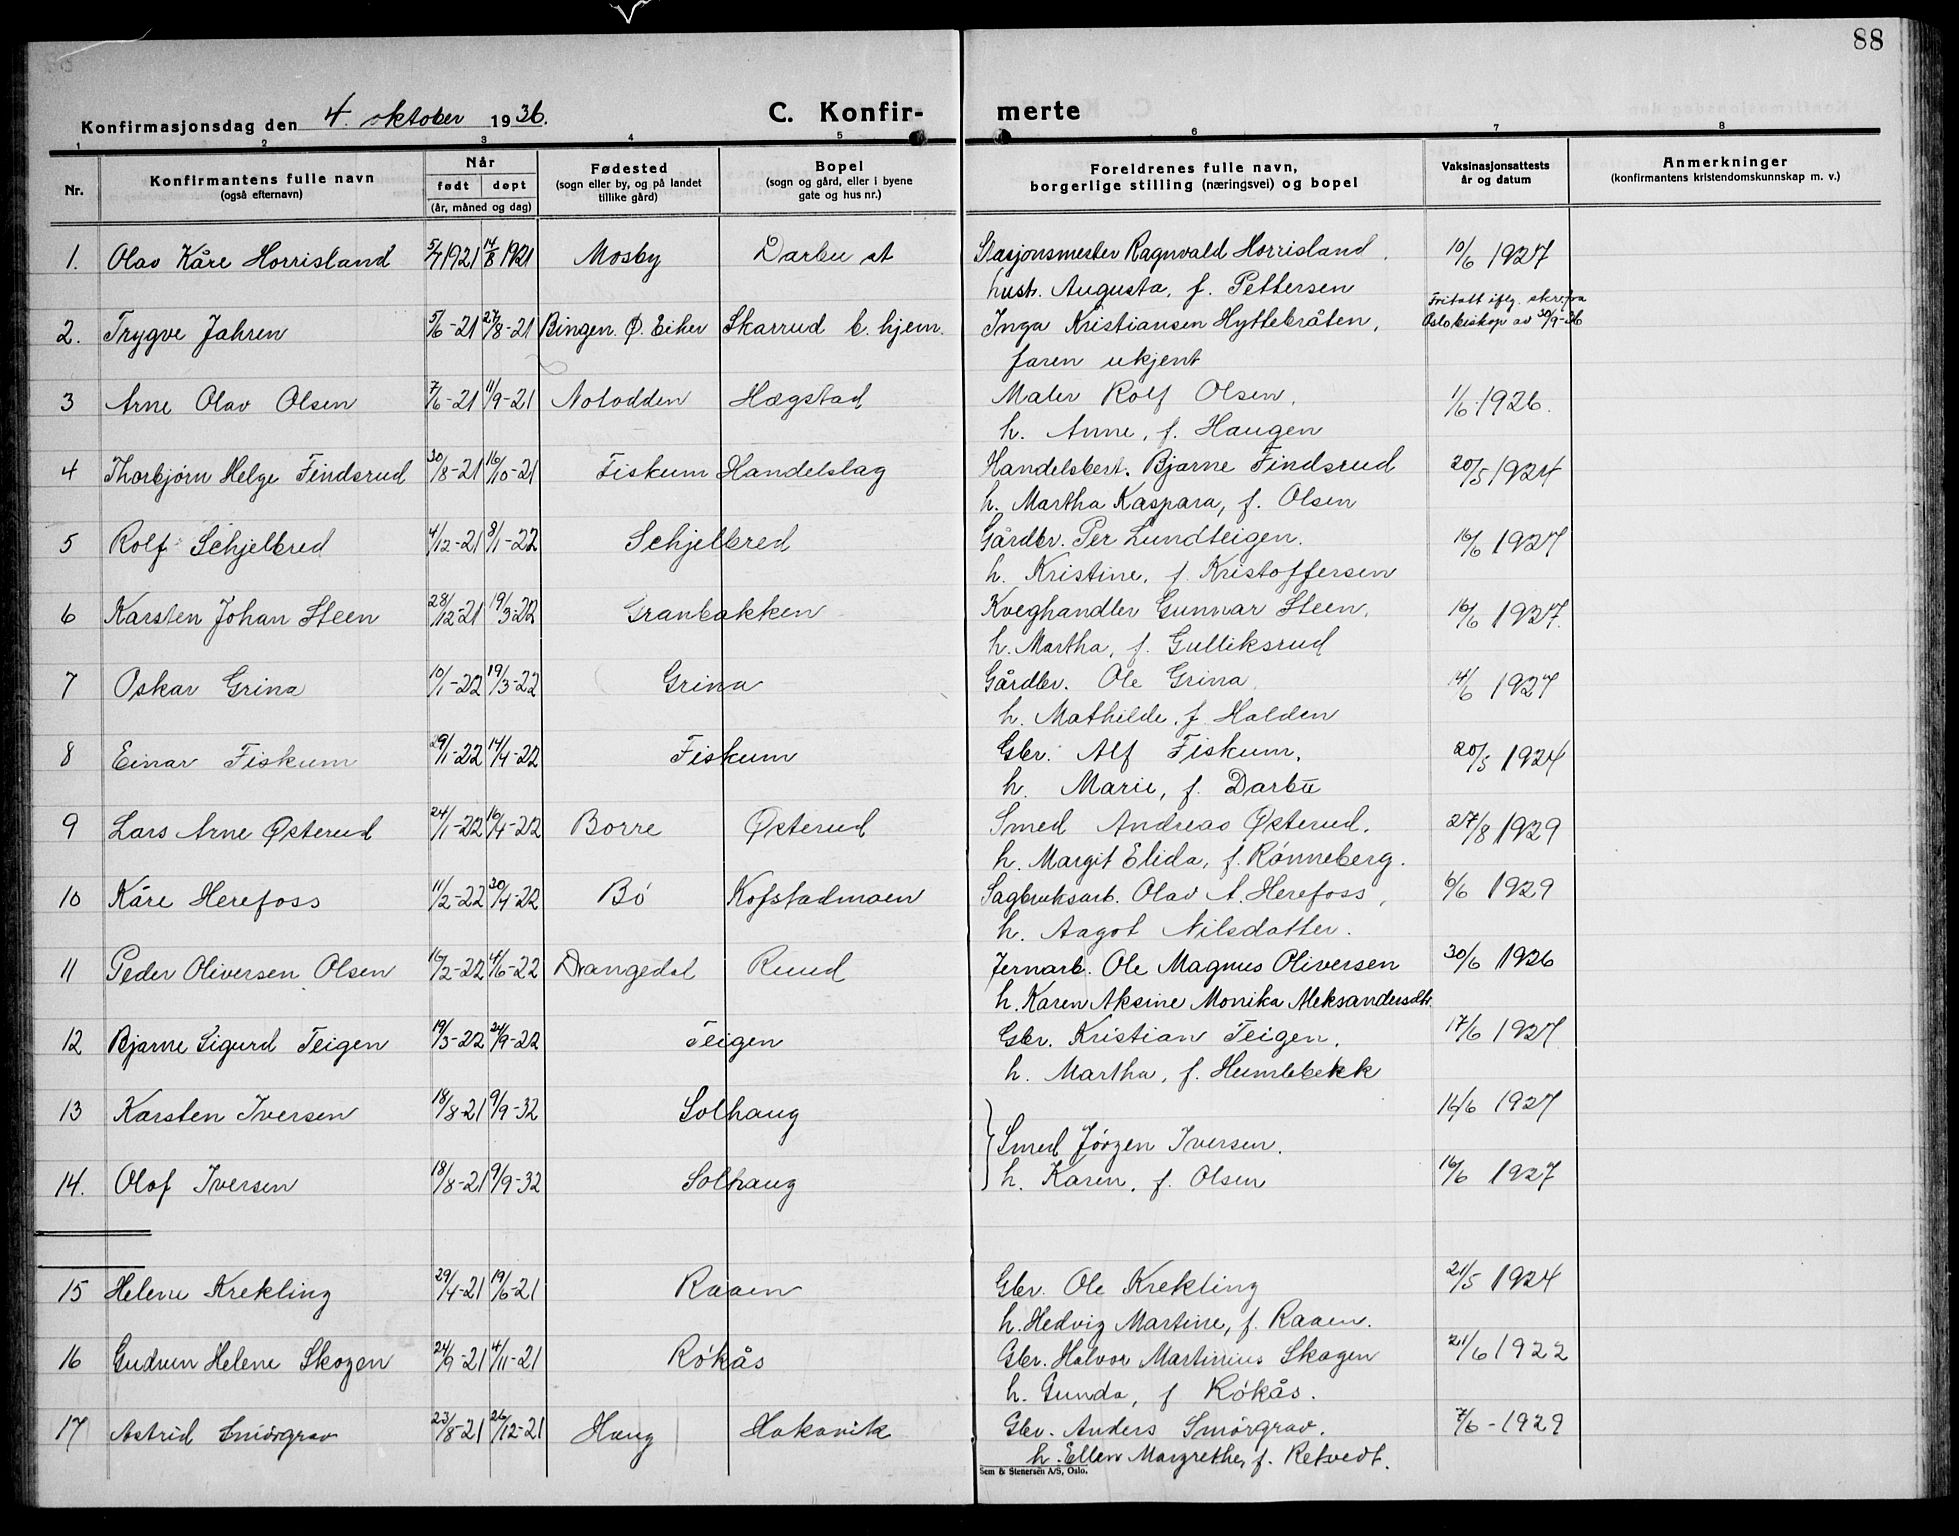 88
Konfirmasjonsdag den 4. oktober 1936.
C. Konfir- merte
1 2 3 4 5 6 7 8
Nr.
Konfirmantens fulle navn
(også efternavn)
Når
født døpt
(år, måned og dag)
Fødested
(sogn eller by, og på landet
tillike gård)
Bopel
(sogn og gård, eller i byene
gate og hus nr.)
Foreldrenes fulle navn,
borgerlige stilling (næringsvei) og bopel
Vaksinasjonsattests
år og datum
Anmerkninger
(konfirmantens kristendomskunnskap m. v.)
1. Olav Kåre Horrisland 5/4 1921 14/8 1921 Mosby Darbu st Stasjonsmester Ragnvald Horrisland, 10/6 1927
hustr. Augusta, f. Pettersen
2. Trygve Jahren 5/6-21 27/8-21 Bingen. Ø. Eiker Skarrud b. hjem. Inga Kristiansen Hyttebråten, Fritatt iflg. skr. fra
faren ukjent Oslo biskop av 30/9-36
3 Arne Olav Olsen 7/6-21 11/9-21 Notodden Hægstad Maler Rolf Olsen, 1/6 1926.
h. Anne, f. Haugen
4 Thorbjørn Helge Findsrud 30/8-21 16/10-21 Fiskum Handelslag Handelsbest. Bjarne Findsrud 20/5 1924
h. Martha Kaspara, f. Olsen
5 Rolf Schjelbred 4/12-21 8/1-22 Schjelbred Gårdbr. Per Lundteigen. 16/6 1927
h. Kristine, f. Kristoffersen
6 Karsten Johan Steen 28/12-21 19/3-22 Granbakken Kveghandler Gunnar Steen, 16/6 1927.
h. Martha, f. Gulliksrud
7 Oskar Grina 10/1-22 19/3-22 Grina Gårdbr. Ole Grina, 14/6 1927
h. Mathilde, f. Halden
8 Einar Fiskum 29/1-22 14/4-22 Fiskum Gbr. Alf Fiskum, 20/5 1924
h. Marie, f. Darbu
9 Lars Arne Østerud 24/1-22 16/4-22 Borre Østerud Smed Andreas Østerud, 27/8 1929
h. Margit Elida, f. Rønneberg.
10 Kåre Herefoss 11/2-22 30/4-22 Bø Kofstadmoen Sagbruksarb. Olav A. Herefoss, 6/6 1929
h. Aagot Nilsdatter.
11 Peder Oliversen Olsen 16/2-22 4/6-22 Drangedal Ruud Jernarb. Ole Magnus Oliversen 30/6 1926
h. Karen Aksine Monika Aleksandersdtr.
12 Bjarne Sigurd Teigen 19/3-22 24/9-22 Teigen Gbr. Kristian Teigen, 17/6 1927
h. Martha, f. Humlebekk
13 Karsten Iversen 18/8-21 9/9-32 Solhaug 16/6 1927
Smed Jörgen Iversen.
14. Olof Iversen 18/8-21 9/9-32 Solhaug h. Karen, f. Olsen 16/6 1927
15 Helene Krekling 29/4-21 19/6-21 Raaen Gbr. Ole Krekling 21/5 1924
h. Hedvig Martine, f. Raaen.
16 Gudrun Helene Skogen 24/9-21 4/11-21 Rökås Gbr. Halvor Martinius Skogen 21/6 1922
h. Gunda, f. Rökås.
17 Astrid Smörgrav 23/8-21 26/12-21 Haug Hakavik Gbr. Anders Smörgrav. 7/6-1929
h. Ellen Margrethe, f. Retvedt.
Sem & Stenersen A/S, Oslo.